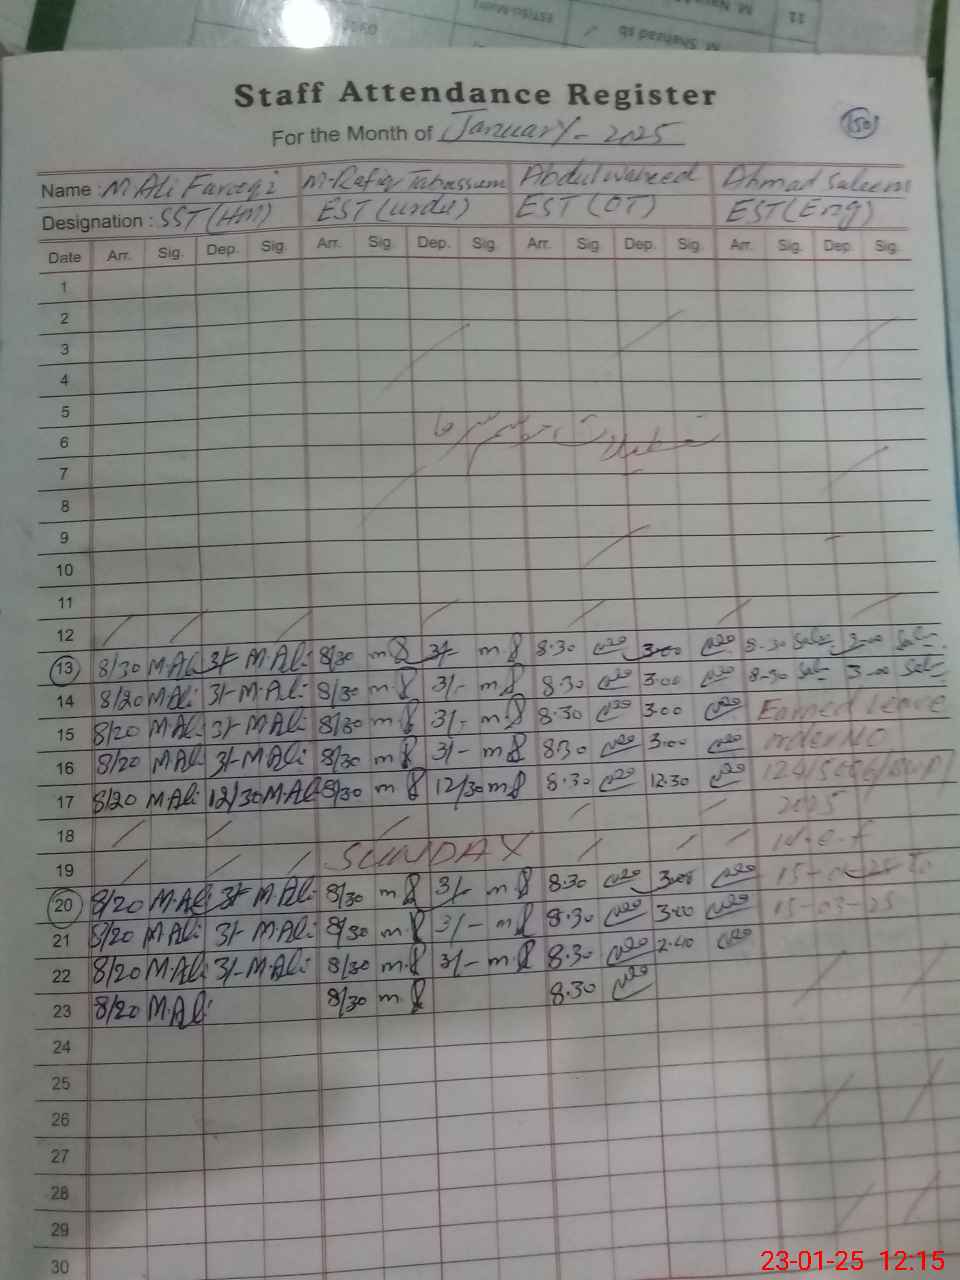 Staff Attendance Register
For the Month of January - 2025
150
Name : M Ali Farooqi M-Rafiq Tabassum Abdul waheed Ahmad Saleem
Designation : SST (HM) EST (Urdu) EST (OT) EST (Eng)
Date Arr. Sig. Dep. Sig. Arr. Sig. Dep. Sig. Arr. Sig. Dep. Sig. Arr. Sig. Dep. Sig.
1
2
3
4
5
6 تعطیلات موسم سرما
7
8
9
10
11
12
13 8/30 M.Ali 3/- M.Ali 8/30 3/- 8.30 3.00 8-30 3-00
14 8/20 M.Ali 3/- M.Ali 8/30 3/- 8.30 3.00 8-30 3-00
15 8/20 M.Ali 3/- M.Ali 8/30 3/- 8.30 3.00 Earned Leave
16 8/20 M.Ali 3/- M.Ali 8/30 3/- 8.30 3.00 order No
17 8/20 M.Ali 12/30 M.Ali 8/30 12/30 8.30 12.30
18 2025
19 SUNDAY W.e.f
20 8/20 M.Ali 3/- M.Ali 8/30 3/- 8.30 3.00 15-01-25 To
21 8/20 M.Ali 3/- M.Ali 8/30 3/- 8.30 3.00 15-03-25
22 8/20 M.Ali 3/- M.Ali 8/30 3/- 8.30 2.40
23 8/20 M.Ali 8/30 8.30
24
25
26
27
28
29
30
23-01-25 12:15